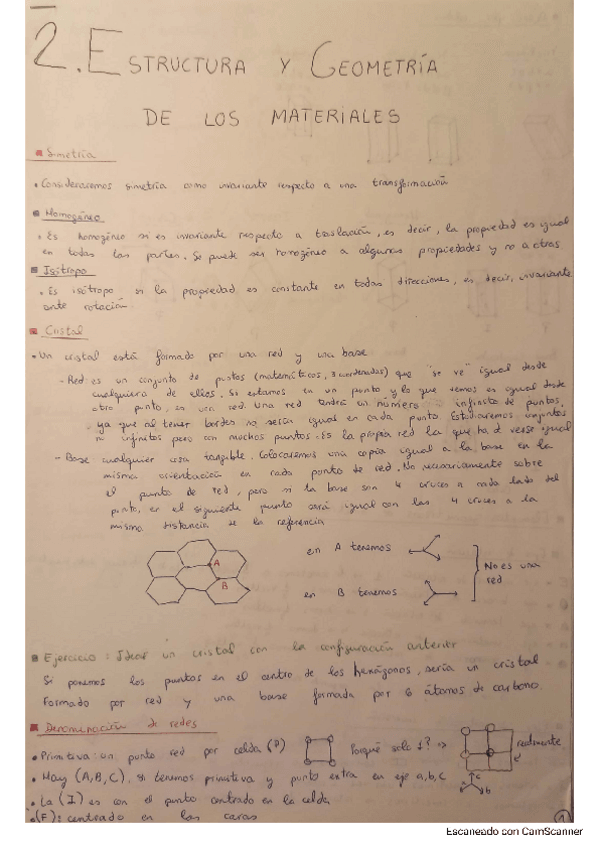 2. ESTRUCTURA Y GEOMETRÍA
DE LOS MATERIALES
Simetría
• Consideraremos simetría como invariante respecto a una transformación
Homogéneo
• Es homogéneo si es invariante respecto a traslación, es decir, la propiedad es igual
en todas las partes. Se puede ser homogéneo a algunas propiedades y no a otras
Isótropo
• Es isótropo si la propiedad es constante en todas direcciones, es decir, invariante
ante rotación.
Cristal
• Un cristal está formado por una red y una base
- Red es un conjunto de puntos (matemáticos, 3 coordenadas) que "se ve" igual desde
cualquiera de ellos. Si estamos en un punto y lo que vemos es igual desde
otro punto, es una red. Una red tendrá un número infinito de puntos,
ya que al tener bordes no sería igual en cada punto. Estudiaremos conjuntos
infinitos pero con muchos puntos. Es la propia red la que ha d verse igual
- Base cualquier cosa tangible. Colocaremos una copia igual a la base en la
misma orientación en cada punto de red. No necesariamente sobre
el punto de red, pero si la base son 4 cruces a cada lado del
punto, en el siguiente punto será igual con las 4 cruces a la
misma distancia de la referencia
A
B
en A tenemos
en B tenemos
No es una
red
Ejercicio: Idear un cristal con la configuración anterior
Si ponemos los puntos en el centro de los hexágonos, sería un cristal
formado por red y una base formada por 6 átomos de carbono.
Denominación de redes
• Primitiva: un punto red por celda (P) Porqué solo 1? => realmente
• Hay (A,B,C), si tenemos primitiva y punto extra en eje a,b,c
c
b
• La (I) es con el punto centrado en la celda
• (F): centrado en las caras
1
Escaneado con CamScanner